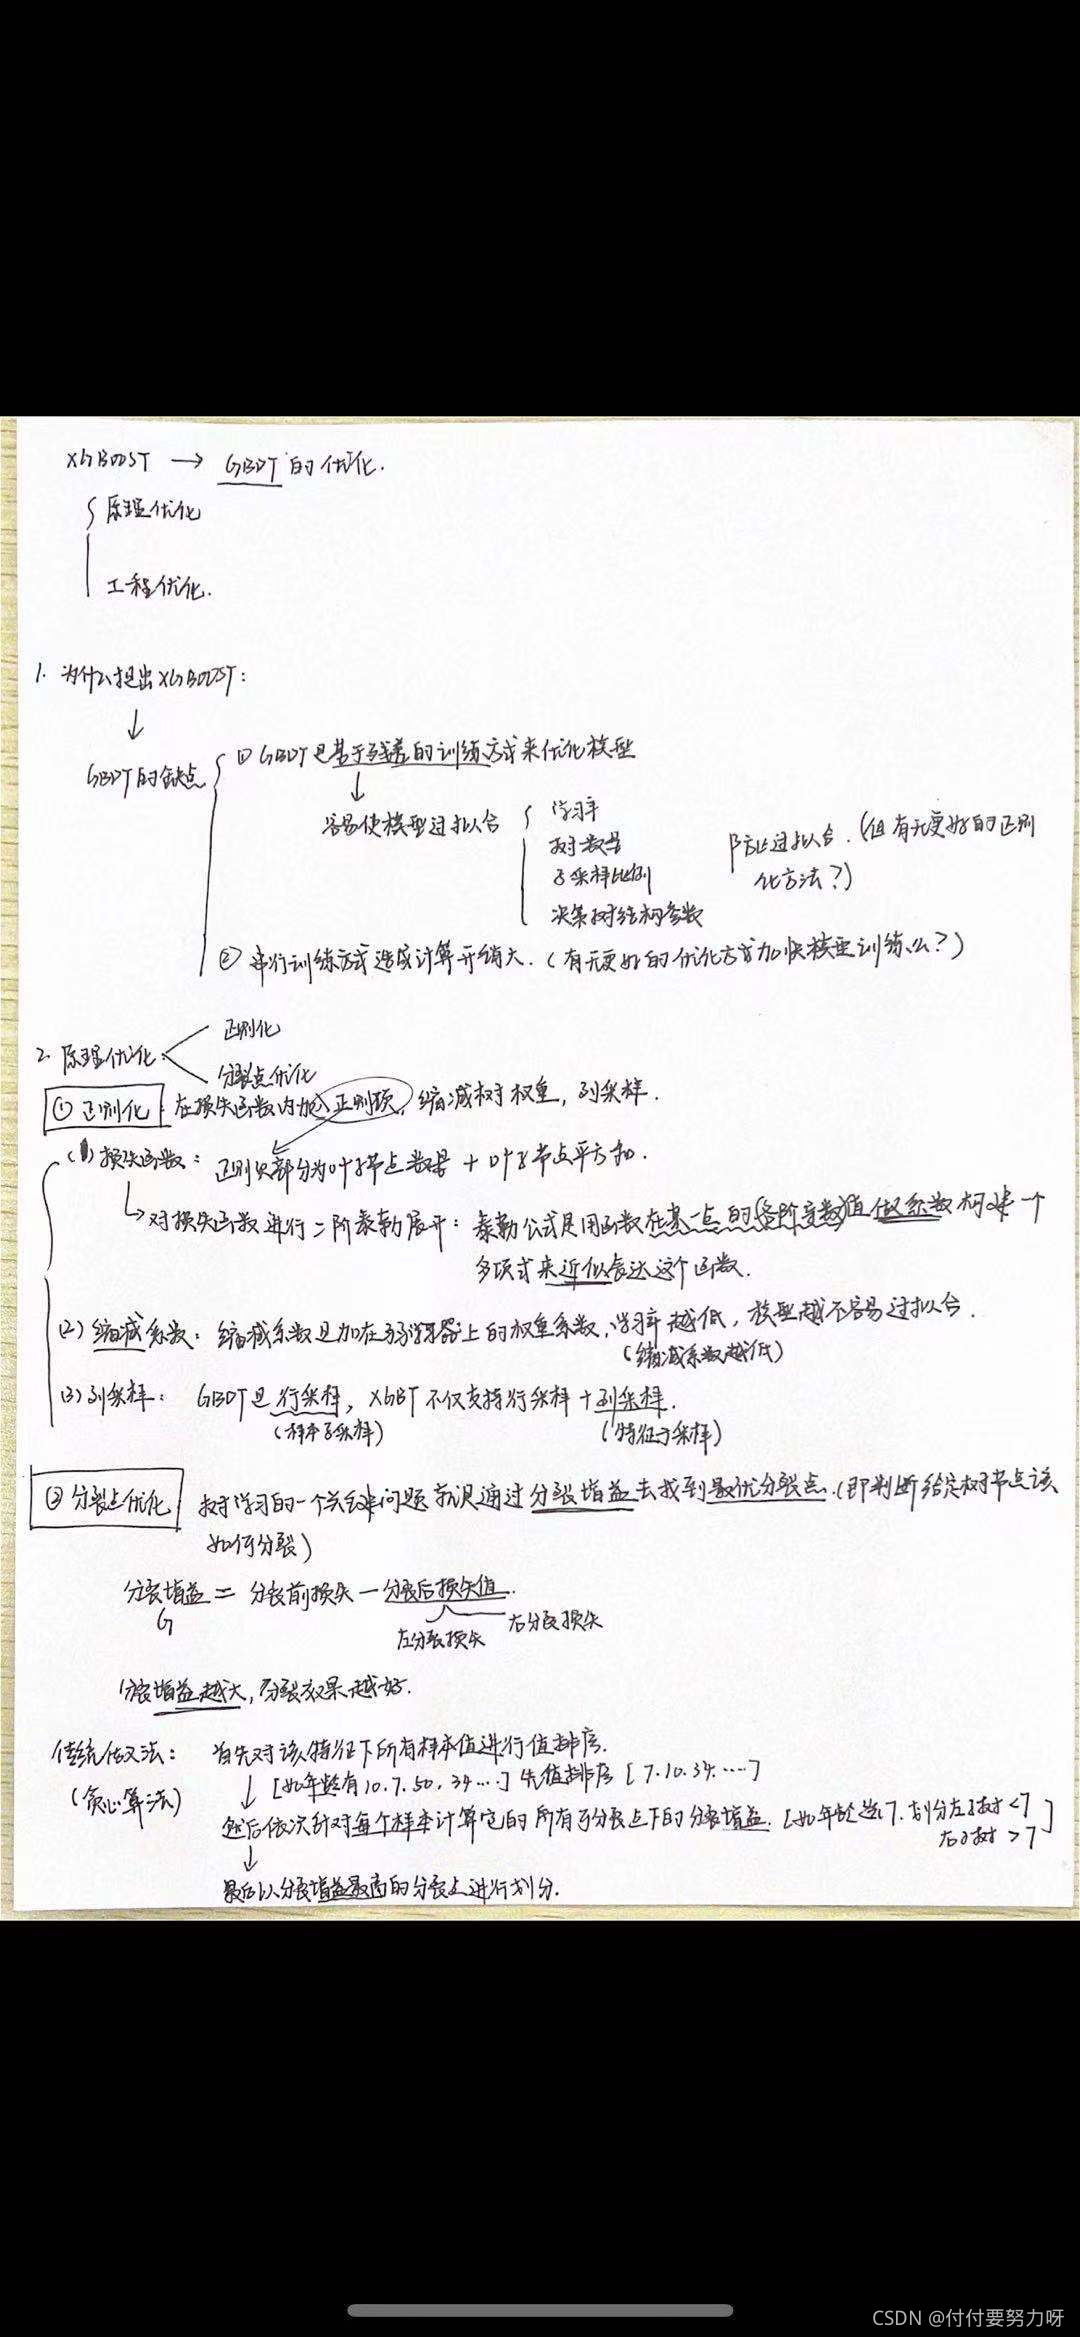 XGBOOST → GBDT的优化.
原理优化
工程优化.
1. 为什么提出XGBOOST:
GBDT的缺点
① GBDT是基于残差的训练方式来优化模型
容易使模型过拟合
学习率
树数量
子采样比例
决策树结构参数
防止过拟合.(但有无更好的正则
化方法?)
② 串行训练方式造成计算开销大.(有无更好的优化方式加快模型训练么?)
2. 原理优化:
正则化
分裂点优化
① 正则化: 在损失函数内加入正则项, 缩减树权重, 列采样.
(1) 损失函数: 正则项部分为叶子节点数量 + 叶子节点平方和.
对损失函数进行二阶泰勒展开: 泰勒公式是用函数在某一点的(各阶变数)值做系数构建一个
多项式来近似表达这个函数.
(2) 缩减系数: 缩减系数是加在弱学习器上的权重系数, 学习率越低, 模型越不容易过拟合.
(缩减系数越低)
(3) 列采样: GBDT是行采样, XGBT不仅支持行采样+列采样.
(样本子采样)
(特征子采样)
② 分裂点优化 树学习的一个关键问题就是通过分裂增益去找到最优分裂点.(即判断给定树节点该
如何分裂)
分裂增益 = 分裂前损失 - 分裂后损失值.
G
左分裂损失
右分裂损失
分裂增益越大, 分裂效果越好.
传统做法: 首先对该特征下所有样本值进行值排序.
(贪心算法)
[如年龄有10.7.50.34...] 先值排序 [7.10.34.....]
然后依次针对每个样本计算它的所有可分裂点下的分裂增益. [如年龄选7. 划分左子树<7
右子树>7]
最后以分裂增益最高的分裂点进行划分.
CSDN @付付要努力呀